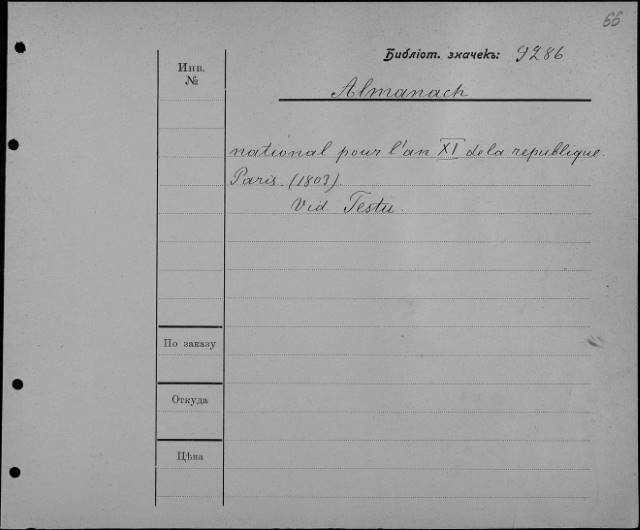 66
Библіот. значекъ: 9286
Инв.
№
Almanach
national pour l'an XI de la republique.
Paris. (1803).
Vid. Testu.
По заказу
Откуда
Цѣна